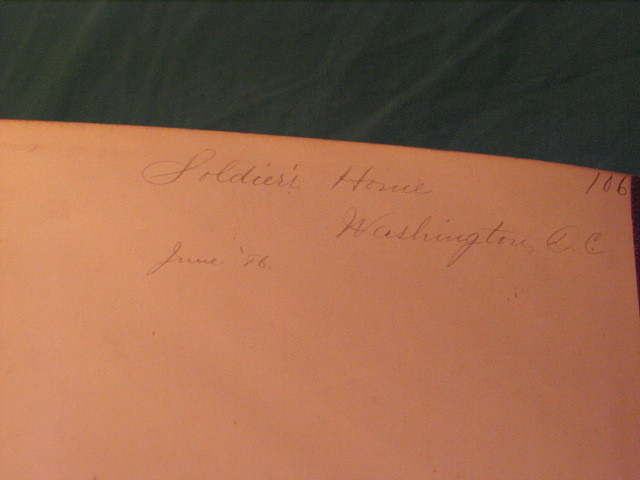 Soldier's Home 106
Washington, D.C.
June '86.